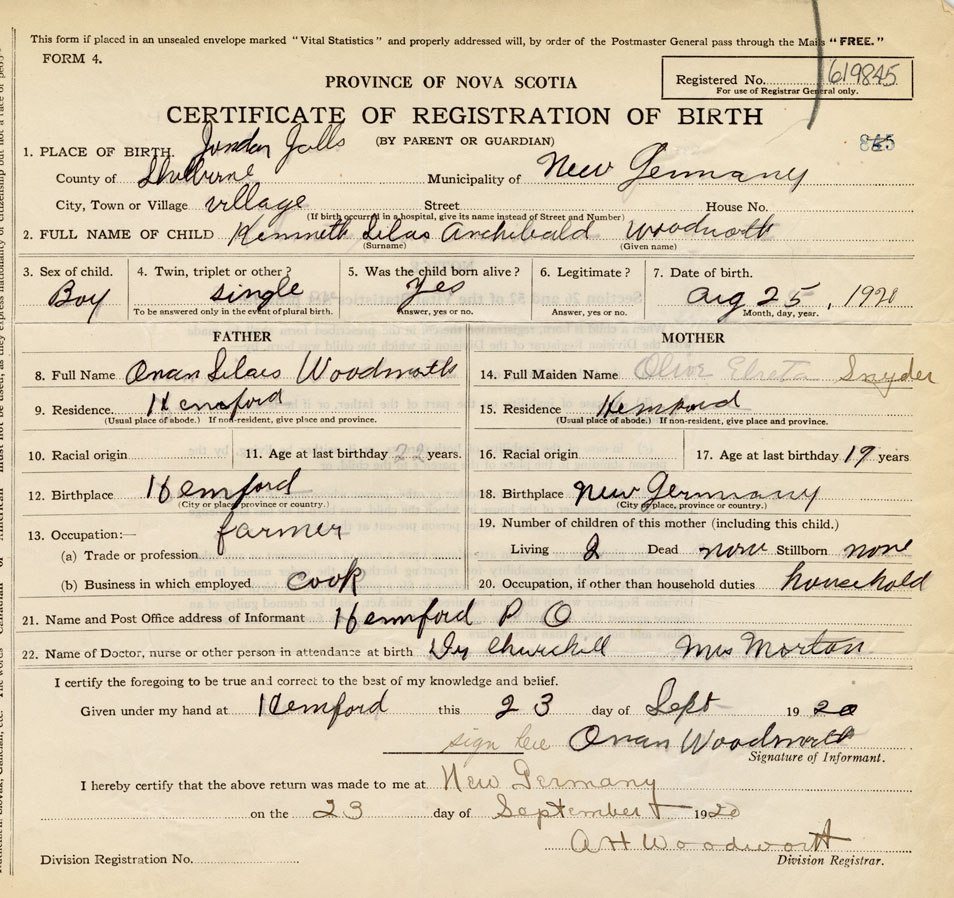 This form if placed in an unsealed envelope marked "Vital Statistics" and properly addressed will, by order of the Postmaster General pass through the Mails "FREE."
FORM 4.
Registered No. 619845
For use of Registrar General only.
PROVINCE OF NOVA SCOTIA
CERTIFICATE OF REGISTRATION OF BIRTH
(BY PARENT OR GUARDIAN)
845
1. PLACE OF BIRTH. Jordan Falls
County of Shelburne Municipality of New Germany
City, Town or Village village Street House No.
(If birth occurred in a hospital, give its name instead of Street and Number)
2. FULL NAME OF CHILD Kenneth Silas Archibald Woodworth
(Surname) (Given name)
3. Sex of child. 4. Twin, triplet or other? 5. Was the child born alive? 6. Legitimate? 7. Date of birth.
Boy single Yes Aug 25, 1920
To be answered only in the event of plural birth. Answer, yes or no. Answer, yes or no. Month, day, year.
FATHER MOTHER
8. Full Name Onan Silas Woodworth 14. Full Maiden Name Olive Elreta Snyder
9. Residence. Hemford 15. Residence Hemford
(Usual place of abode.) If non-resident, give place and province. (Usual place of abode.) If non-resident, give place and province.
10. Racial origin 11. Age at last birthday 22 years. 16. Racial origin 17. Age at last birthday 19 years
12. Birthplace Hemford 18. Birthplace New Germany
(City or place, province or country.) (City or place, province or country.)
13. Occupation:— farmer 19. Number of children of this mother (including this child.)
(a) Trade or profession Living 2 Dead none Stillborn none
(b) Business in which employed cook 20. Occupation, if other than household duties household
21. Name and Post Office address of Informant Hemford P O
22. Name of Doctor, nurse or other person in attendance at birth Dr Churchill Mrs Morton
I certify the foregoing to be true and correct to the best of my knowledge and belief.
Given under my hand at Hemford this 23 day of Sept 1920
sign here Onan Woodworth
Signature of Informant.
I hereby certify that the above return was made to me at New Germany
on the 23 day of September 1920
A H Woodworth
Division Registration No. Division Registrar.